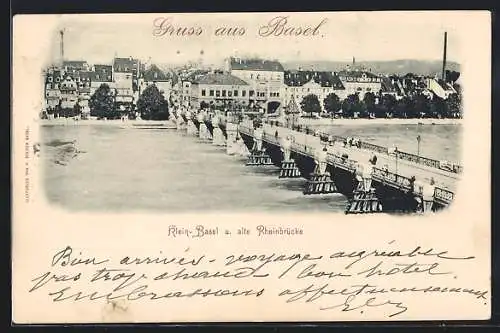 Gruss aus Basel.
Klein-Basel u. alte Rheinbrücke
Bien arrivés - voyage agréable
pas trop chaud - bon hôtel.
Embrassons affectueusement.